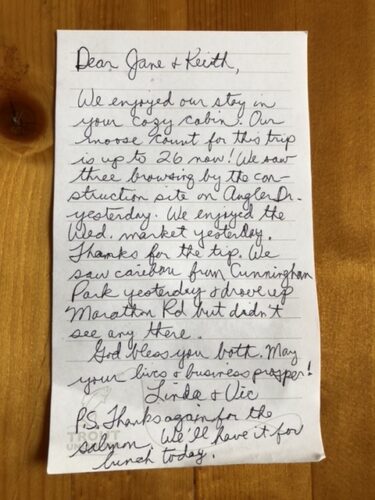 Dear Jane & Keith,
We enjoyed our stay in
your cozy cabin! Our
moose count for this trip
is up to 26 now! We saw
three browsing by the con-
struction site on Angler Dr.
yesterday. We enjoyed the
Wed. market yesterday.
Thanks for the tip. We
saw caribou from Cunningham
Park yesterday & drove up
Marathon Rd but didn't
see any there.
God bless you both. May
your lives & business prosper!
Linda & Vic
P.S. Thanks again for the
salmon. We'll have it for
lunch today.
TROUT